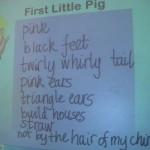 First Little Pig
pink
black feet
twirly whirly tail
pink ears
triangle ears
build houses
straw
not by the hair of my chin